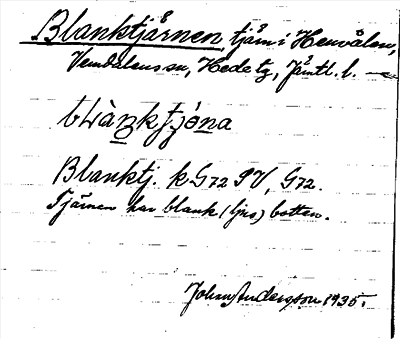 Blanktjärnen, tjärn i Henvålen,
Vemdalens sn, Hede tg, Jämtl. l.
Blanktj. k G72 SV, G72.
Tjärnen har blank (ljus) botten.
Johan Andersson 1935.